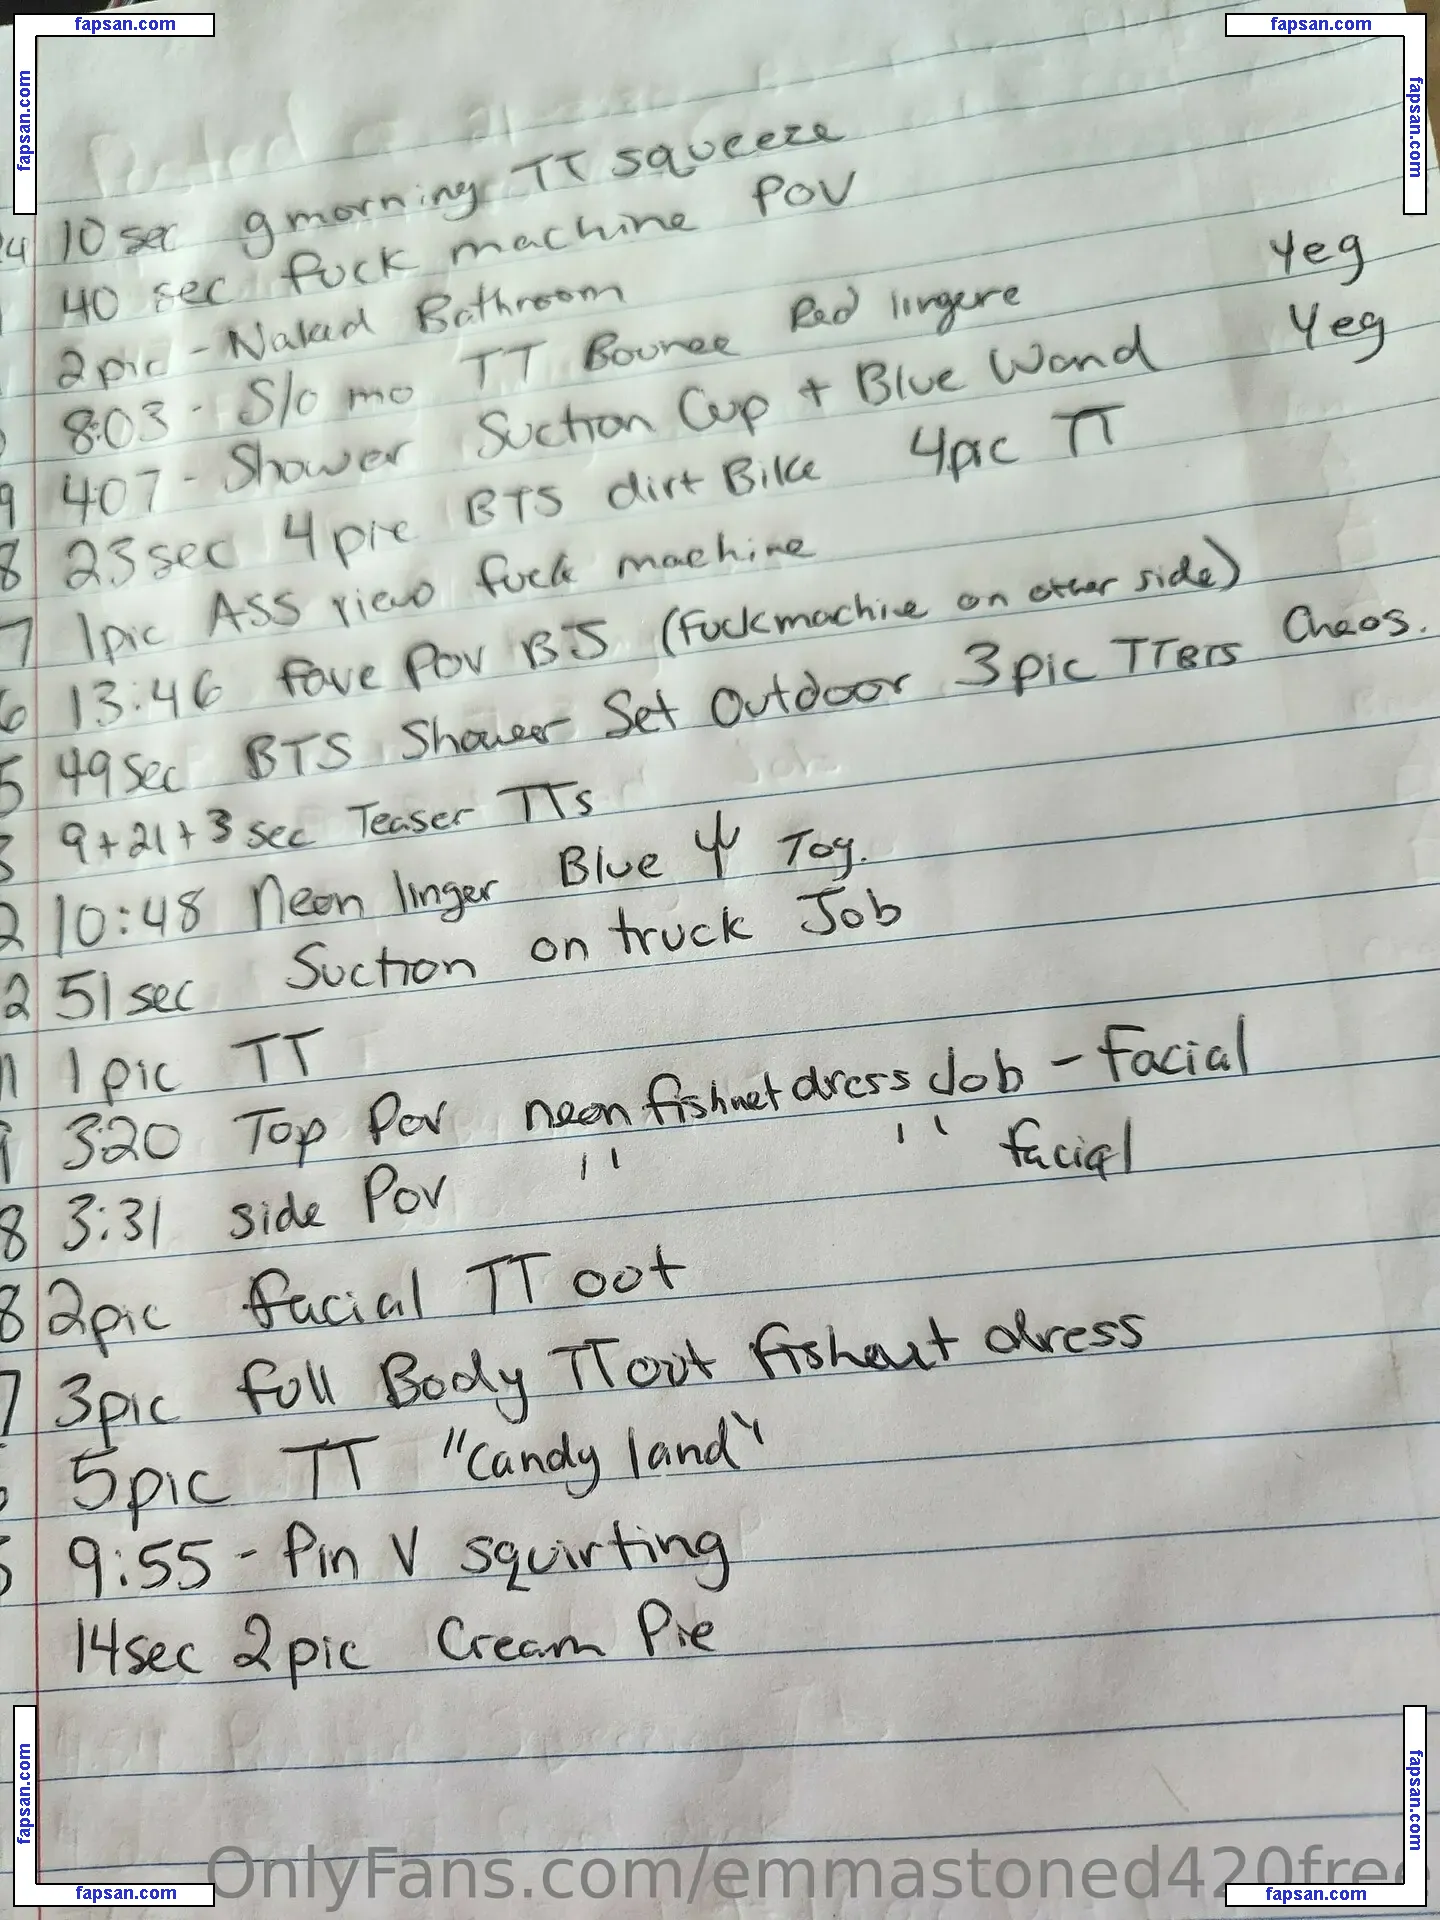 fapsan.com
fapsan.com
fapsan.com
fapsan.com
4 10 sec gmorning TT squeeze
40 sec fuck machine POV
2pic - Naked Bathroom
8:03 - S/o mo TT Bounce Red lingere Yeg
9 407 - Shower Suction Cup + Blue Wand Yeg
8 23sec 4pic BTS dirt Bike 4pic TT
7 1pic ASS view fuck machine
6 13:46 fave POV BJ (fuckmachine on other side)
5 49sec BTS Shower Set Outdoor 3pic TTBTS Chaos.
9+21+3 sec Teaser TTs
2 10:48 Neon linger Blue Ψ Toy.
2 51sec Suction on truck Job
11 1pic TT
3:20 Top Pov neon fishnet dress Job - Facial
8 3:31 side Pov " " facial
8 2pic facial TT oot
7 3pic full Body TT out fishnet dress
5pic TT "Candy land"
9:55 - Pin V squirting
14sec 2pic Cream Pie
fapsan.com
fapsan.com
OnlyFans.com/emmastoned420free
fapsan.com
fapsan.com